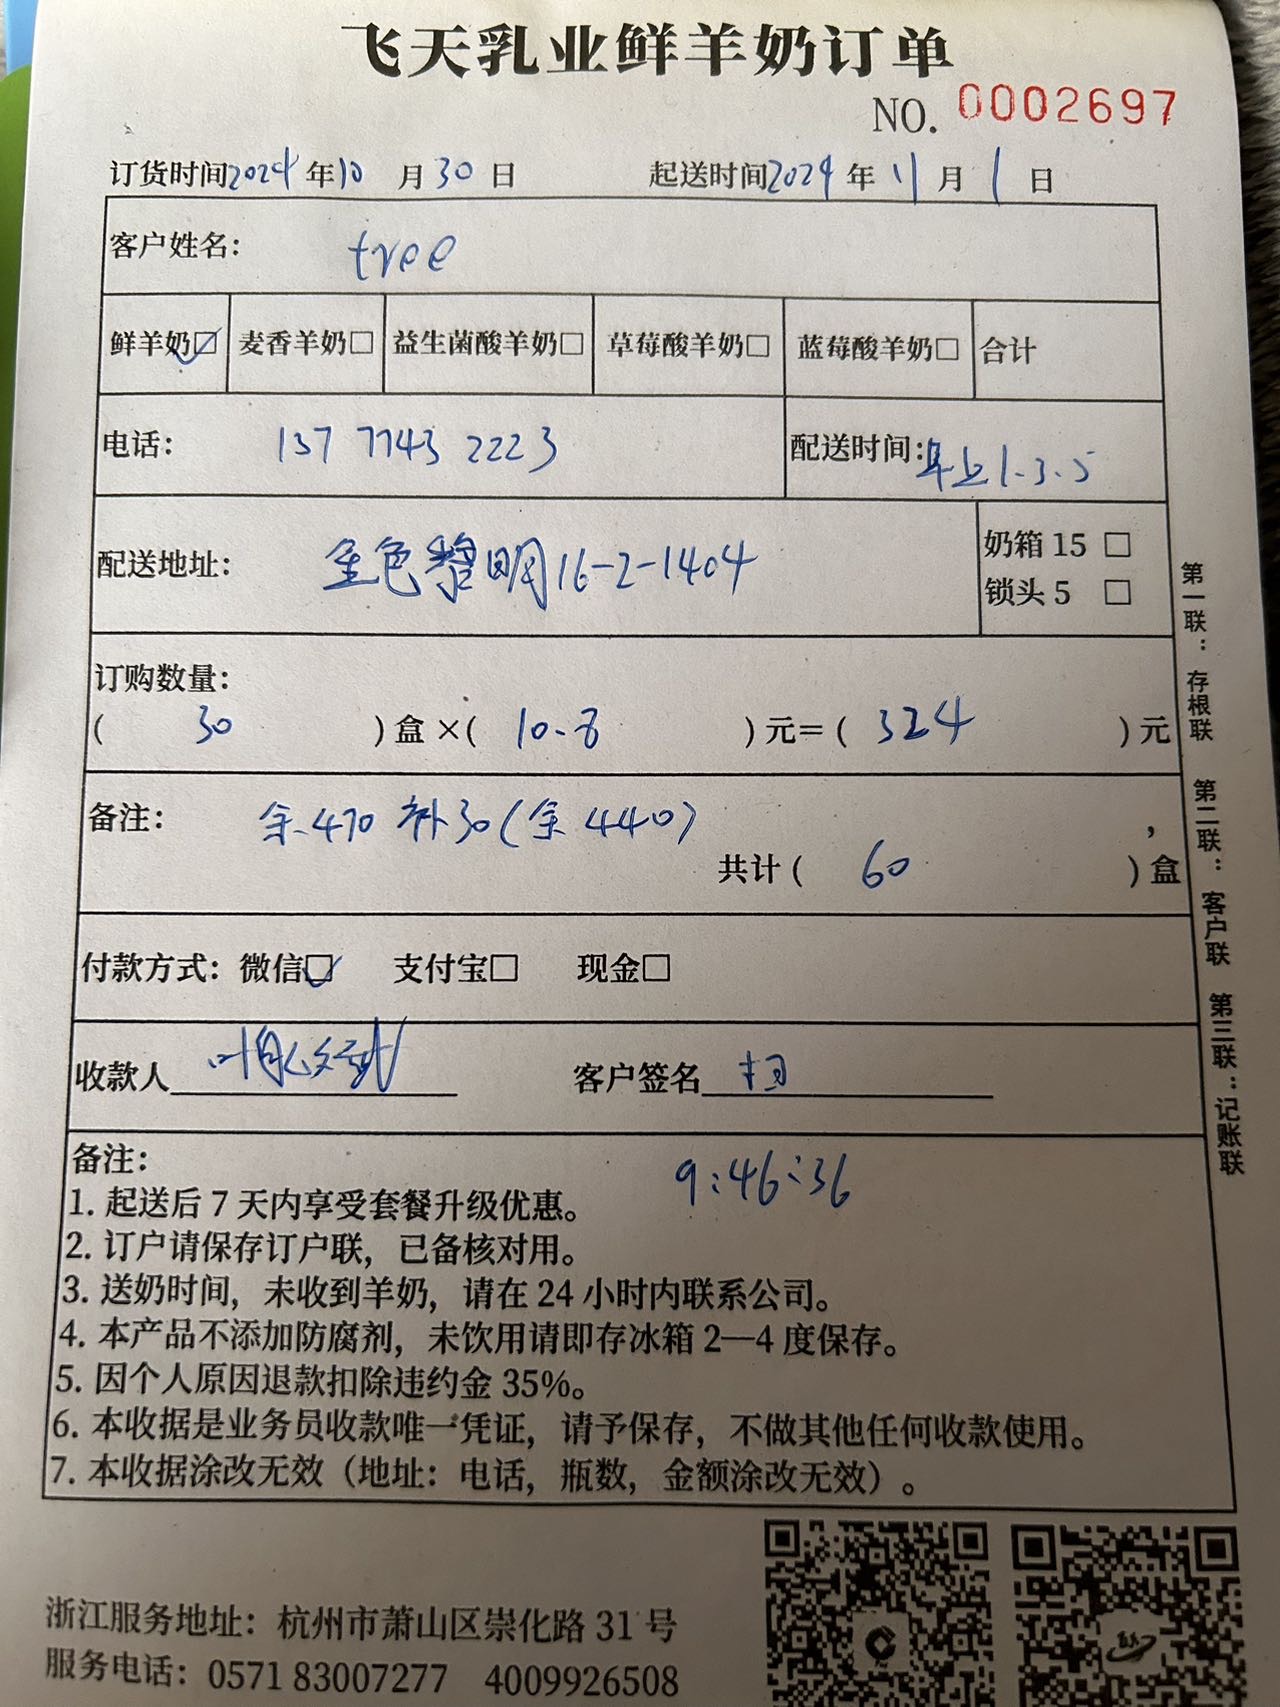 飞天乳业鲜羊奶订单
NO. 0002697
订货时间2024年10月30日 起送时间2024年11月1日
客户姓名: tree
鲜羊奶☑ 麦香羊奶□ 益生菌酸羊奶□ 草莓酸羊奶□ 蓝莓酸羊奶□ 合计
电话: 137 7743 2223 配送时间:早上1.3.5
配送地址: 金色黎明16-2-1404
奶箱 15 □
锁头 5 □
订购数量:
( 30 )盒×( 10.8 )元=( 324 )元
备注: 余470 补30(余440)
共计( 60 )盒
付款方式: 微信☑ 支付宝□ 现金□
收款人 客户签名
9:46:36
备注:
1. 起送后 7 天内享受套餐升级优惠。
2. 订户请保存订户联，已备核对用。
3. 送奶时间，未收到羊奶，请在 24 小时内联系公司。
4. 本产品不添加防腐剂，未饮用请即存冰箱 2—4 度保存。
5. 因个人原因退款扣除违约金 35%。
6. 本收据是业务员收款唯一凭证，请予保存，不做其他任何收款使用。
7. 本收据涂改无效（地址：电话，瓶数，金额涂改无效）。
第一联：存根联 第二联：客户联 第三联：记账联
浙江服务地址：杭州市萧山区崇化路 31 号
服务电话：0571 83007277 4009926508